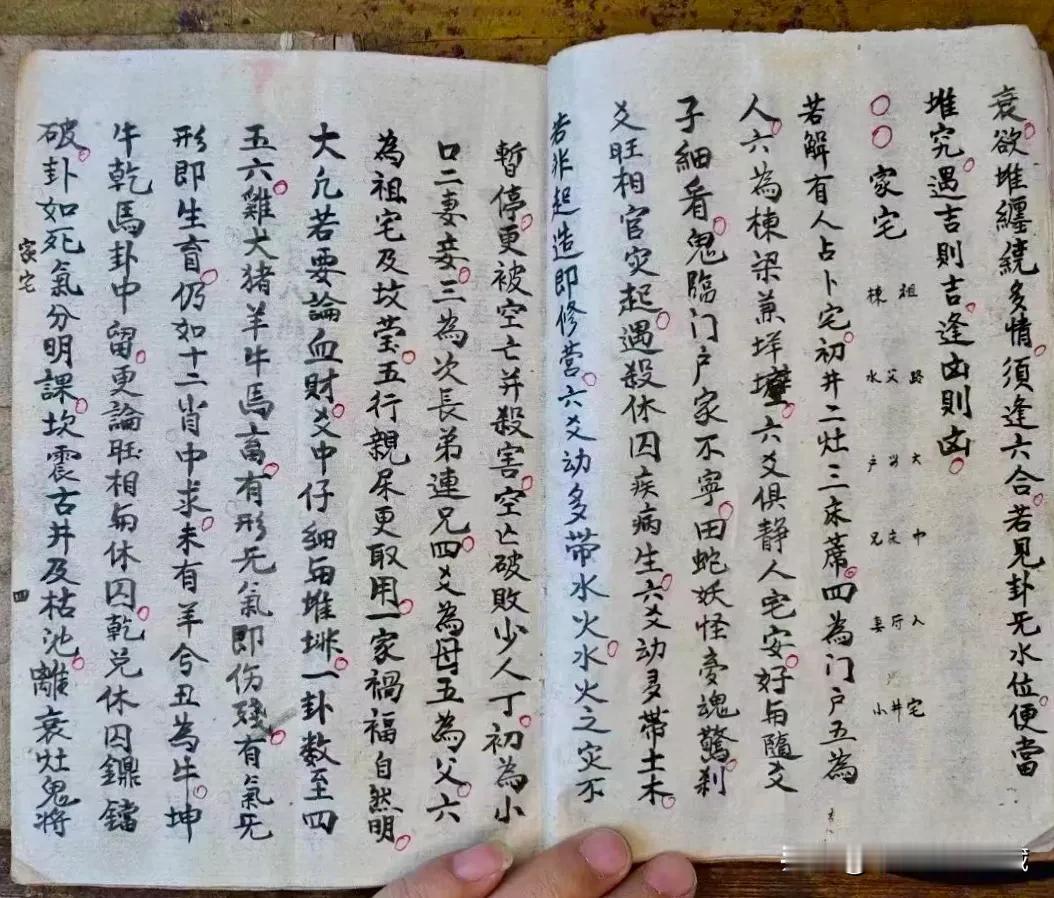 衰欲堆纏繞多情須逢六合若見卦旡水位便當
堆究遇吉則吉逢凶則凶
家宅
棟 祖
水 父 路
户 大
兄 中
妻 人
小 井 宅
若解有人占卜宅初井二灶三床蓆四為门户五為
人六為棟梁兼垟壁六爻俱静人宅安好与隨爻
子細看鬼臨门户家不寧田蛇妖怪夢魂驚刹
爻旺相官灾起遇殺休囚疾病生六爻动多带土木
若非起造即修营六爻动多带水火水火之灾不
暫停更被空亡并殺害空亡破敗少人丁初為小
口二妻妾三為次長弟連兄四爻為母五為父六
為祖宅及坟茔五行親屎更取用一家禍福自然明
大凣若要論血財爻中仔细与堆排一卦数至四
五六雞犬猪羊牛馬畜有形旡氣即伤残有氣旡
形即生育仍如十二肖中求未有羊兮丑為牛坤
牛乾馬卦中留更論旺相与休囚乾兑休囚鐤鐺
破卦如死氣分明課坎震古井及枯池離衰灶鬼将
家宅
四